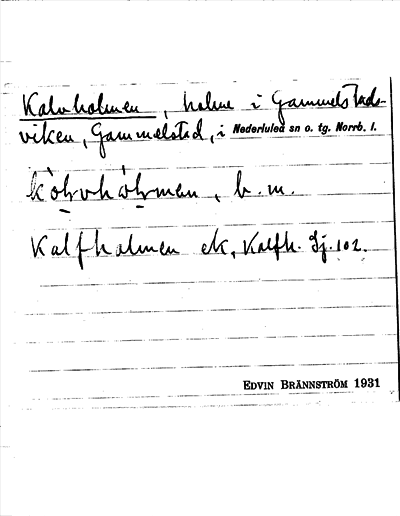 Kalvholmen, holme i Gammelstads-
viken, Gammelstad, i Nederluleå sn o. tg. Norrb. l.
b. m.
Kalfholmen ek, Kalfh. Gj. 102.
EDVIN BRÄNNSTRÖM 1931